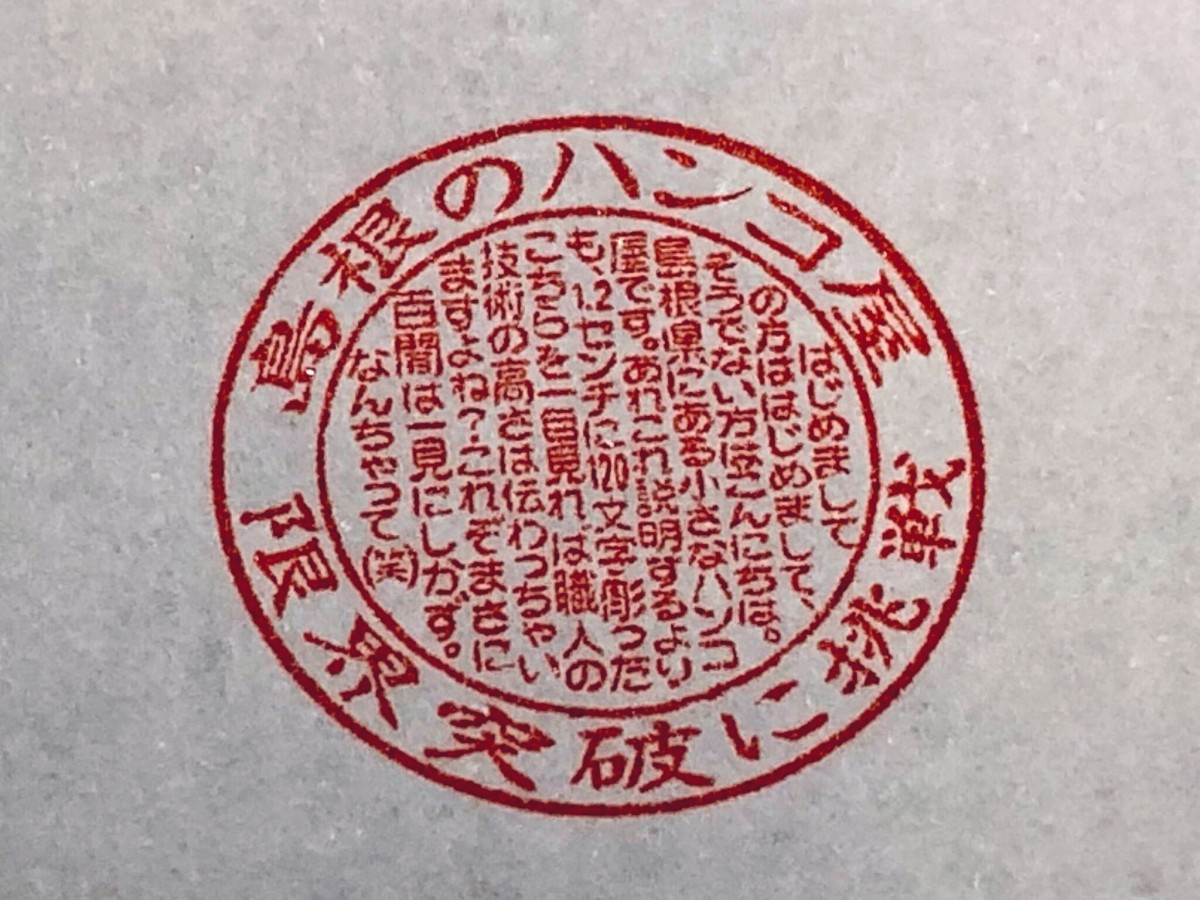 島根のハンコ屋
限界突破に挑戦
はじめまして
の方ははじめまして、
そうでない方はこんにちは。
島根県にある小さなハンコ
屋です。あれこれ説明するより
も、1.2センチに120文字彫った
こちらを一目見れば職人の
技術の高さは伝わっちゃい
ますよね?これぞまさに
百聞は一見にしかず。
なんちゃって(笑)